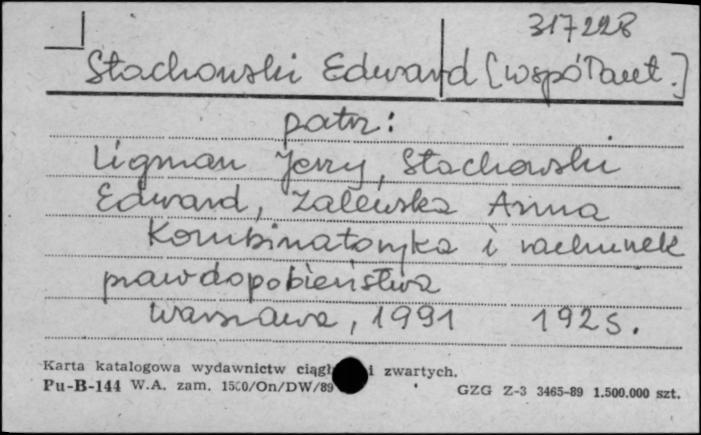 317228
Stachowski Edward [współaut.]
patrz:
Ligman Jerzy, Stachowski
Edward, Zalewska Anna
Kombinatoryka i rachunek
prawdopobieństwa
Warszawa, 1991 192 s.
Karta katalogowa wydawnictw i zwartych.
Pu-B-144 W.A. zam. 1500/On/DW/89 GZG Z-3 3465-89 1.500.000 szt.